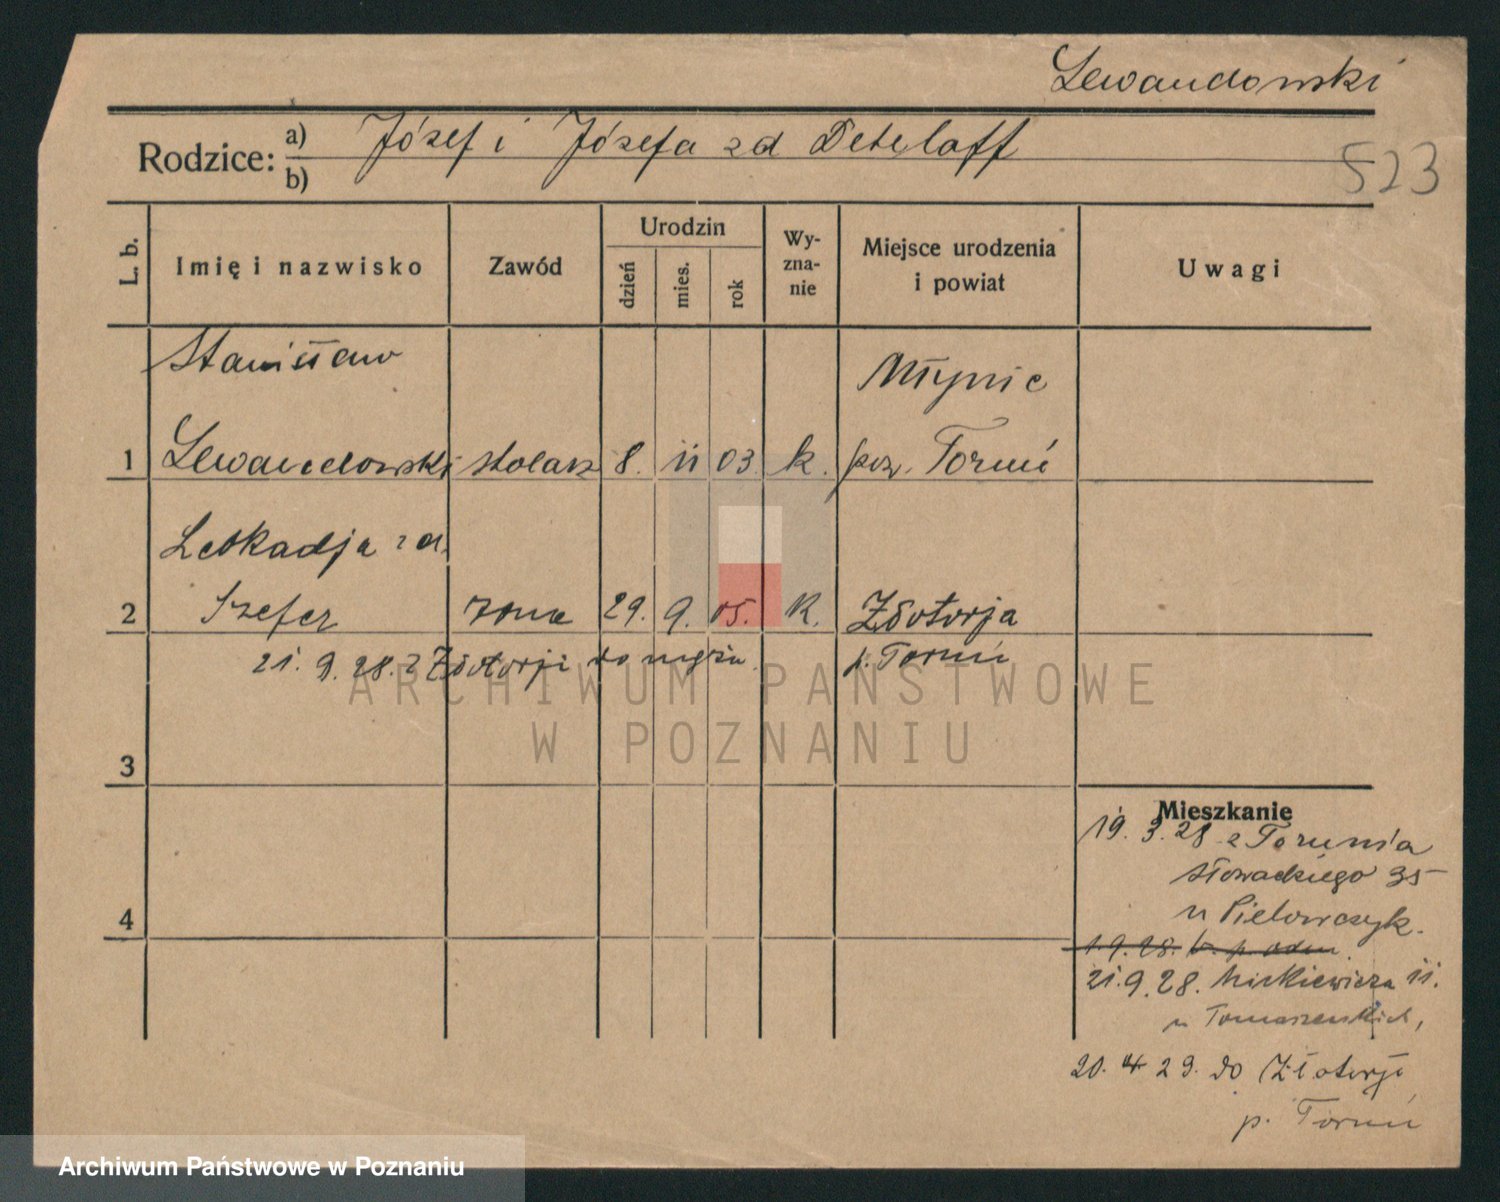 Lewandowski
Rodzice: a) Józef i Józefa zd Detelaff
b)
523
L. b.
Imię i nazwisko
Zawód
Urodzin
dzień
mies.
rok
Wy-
zna-
nie
Miejsce urodzenia
i powiat
Uwagi
Stanisław
Młynic
1 Lewandowski stolarz 8. 11 03 k. pow. Toruń
Leokadja zd.
2 Szefer żona 29. 9. 05. k. Złotorja
21. 9. 28. z Złotorji do męża p. Toruń
3
Mieszkanie
19. 3. 28 z Torunia
Słowackiego 35
u Pielowczyk.
4
1.9.28. p. odm.
21.9.28. Mickiewicza 11.
u Tomaszewskich,
20. 4 29. do Złotorji
p. Toruń
ARCHIWUM PAŃSTWOWE
W POZNANIU
Archiwum Państwowe w Poznaniu